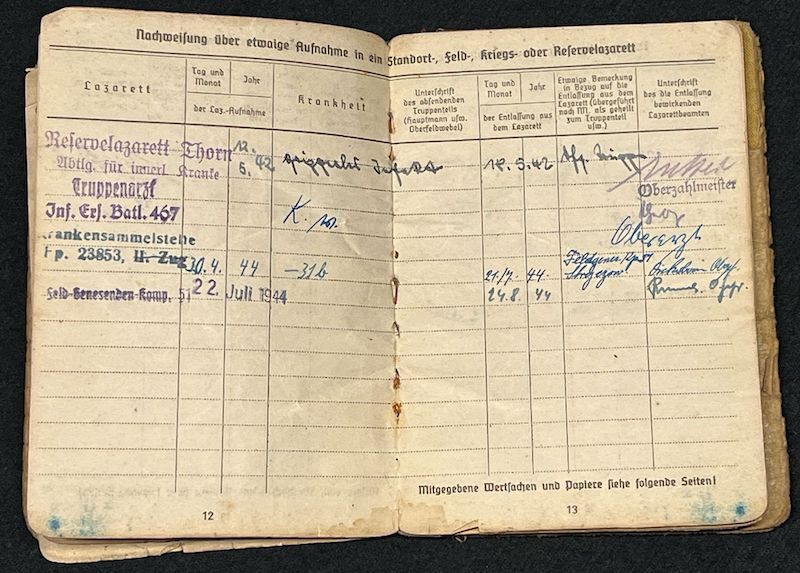 Nachweisung über etwaige Aufnahme in ein Standort-, Feld-, Kriegs- oder Reservelazarett
Lazarett
Tag und Monat
Jahr
der Laz.-Aufnahme
Krankheit
Unterschrift
des absendenden
Truppenteils
(Hauptmann usw.
Oberfeldwebel)
Tag und Monat
Jahr
der Entlassung aus dem Lazarett
Etwaige Bemerkung
in Bezug auf die
Entlassung aus dem
Lazarett (übergeführt
nach NN. als geheilt
zum Truppenteil
usw.)
Unterschrift
des die Entlassung
bewirkenden
Lazarettbeamten
Reservelazarett Thorn
Abtlg. für innerl. Kranke
12. 5. 42
18. 5. 42
Oberzahlmeister
Truppenarzt
Inf. Ers. Batl. 467
K.
Oberarzt
Krankensammelstelle
Fp. 23853, II. Zug
30.4. 44 -31b
21.7. 44
Feld-Genesenden-Komp. 51
22. Juli 1944
24.8. 44
Mitgegebene Wertsachen und Papiere siehe folgende Seiten!
12
13